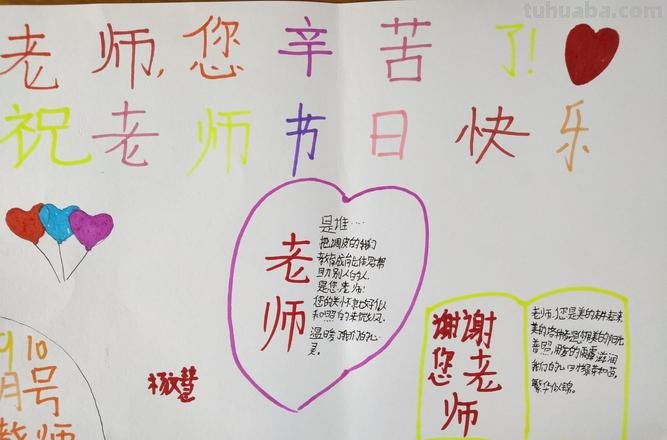 tuhuaba.com
老师,您辛苦了!
祝老师节日快乐
老师
是谁…
把调皮的我们
教育成能
助别人的人
是您,老师!
您的
和照的
温暖了我们的心
灵。
谢谢老师
谢您
老师,您是美的耕耘者,
美的播种者,是您用美的阳光
普照,用美的雨露滋润
我们的心田
繁华似锦。
9月10号
教师
慧